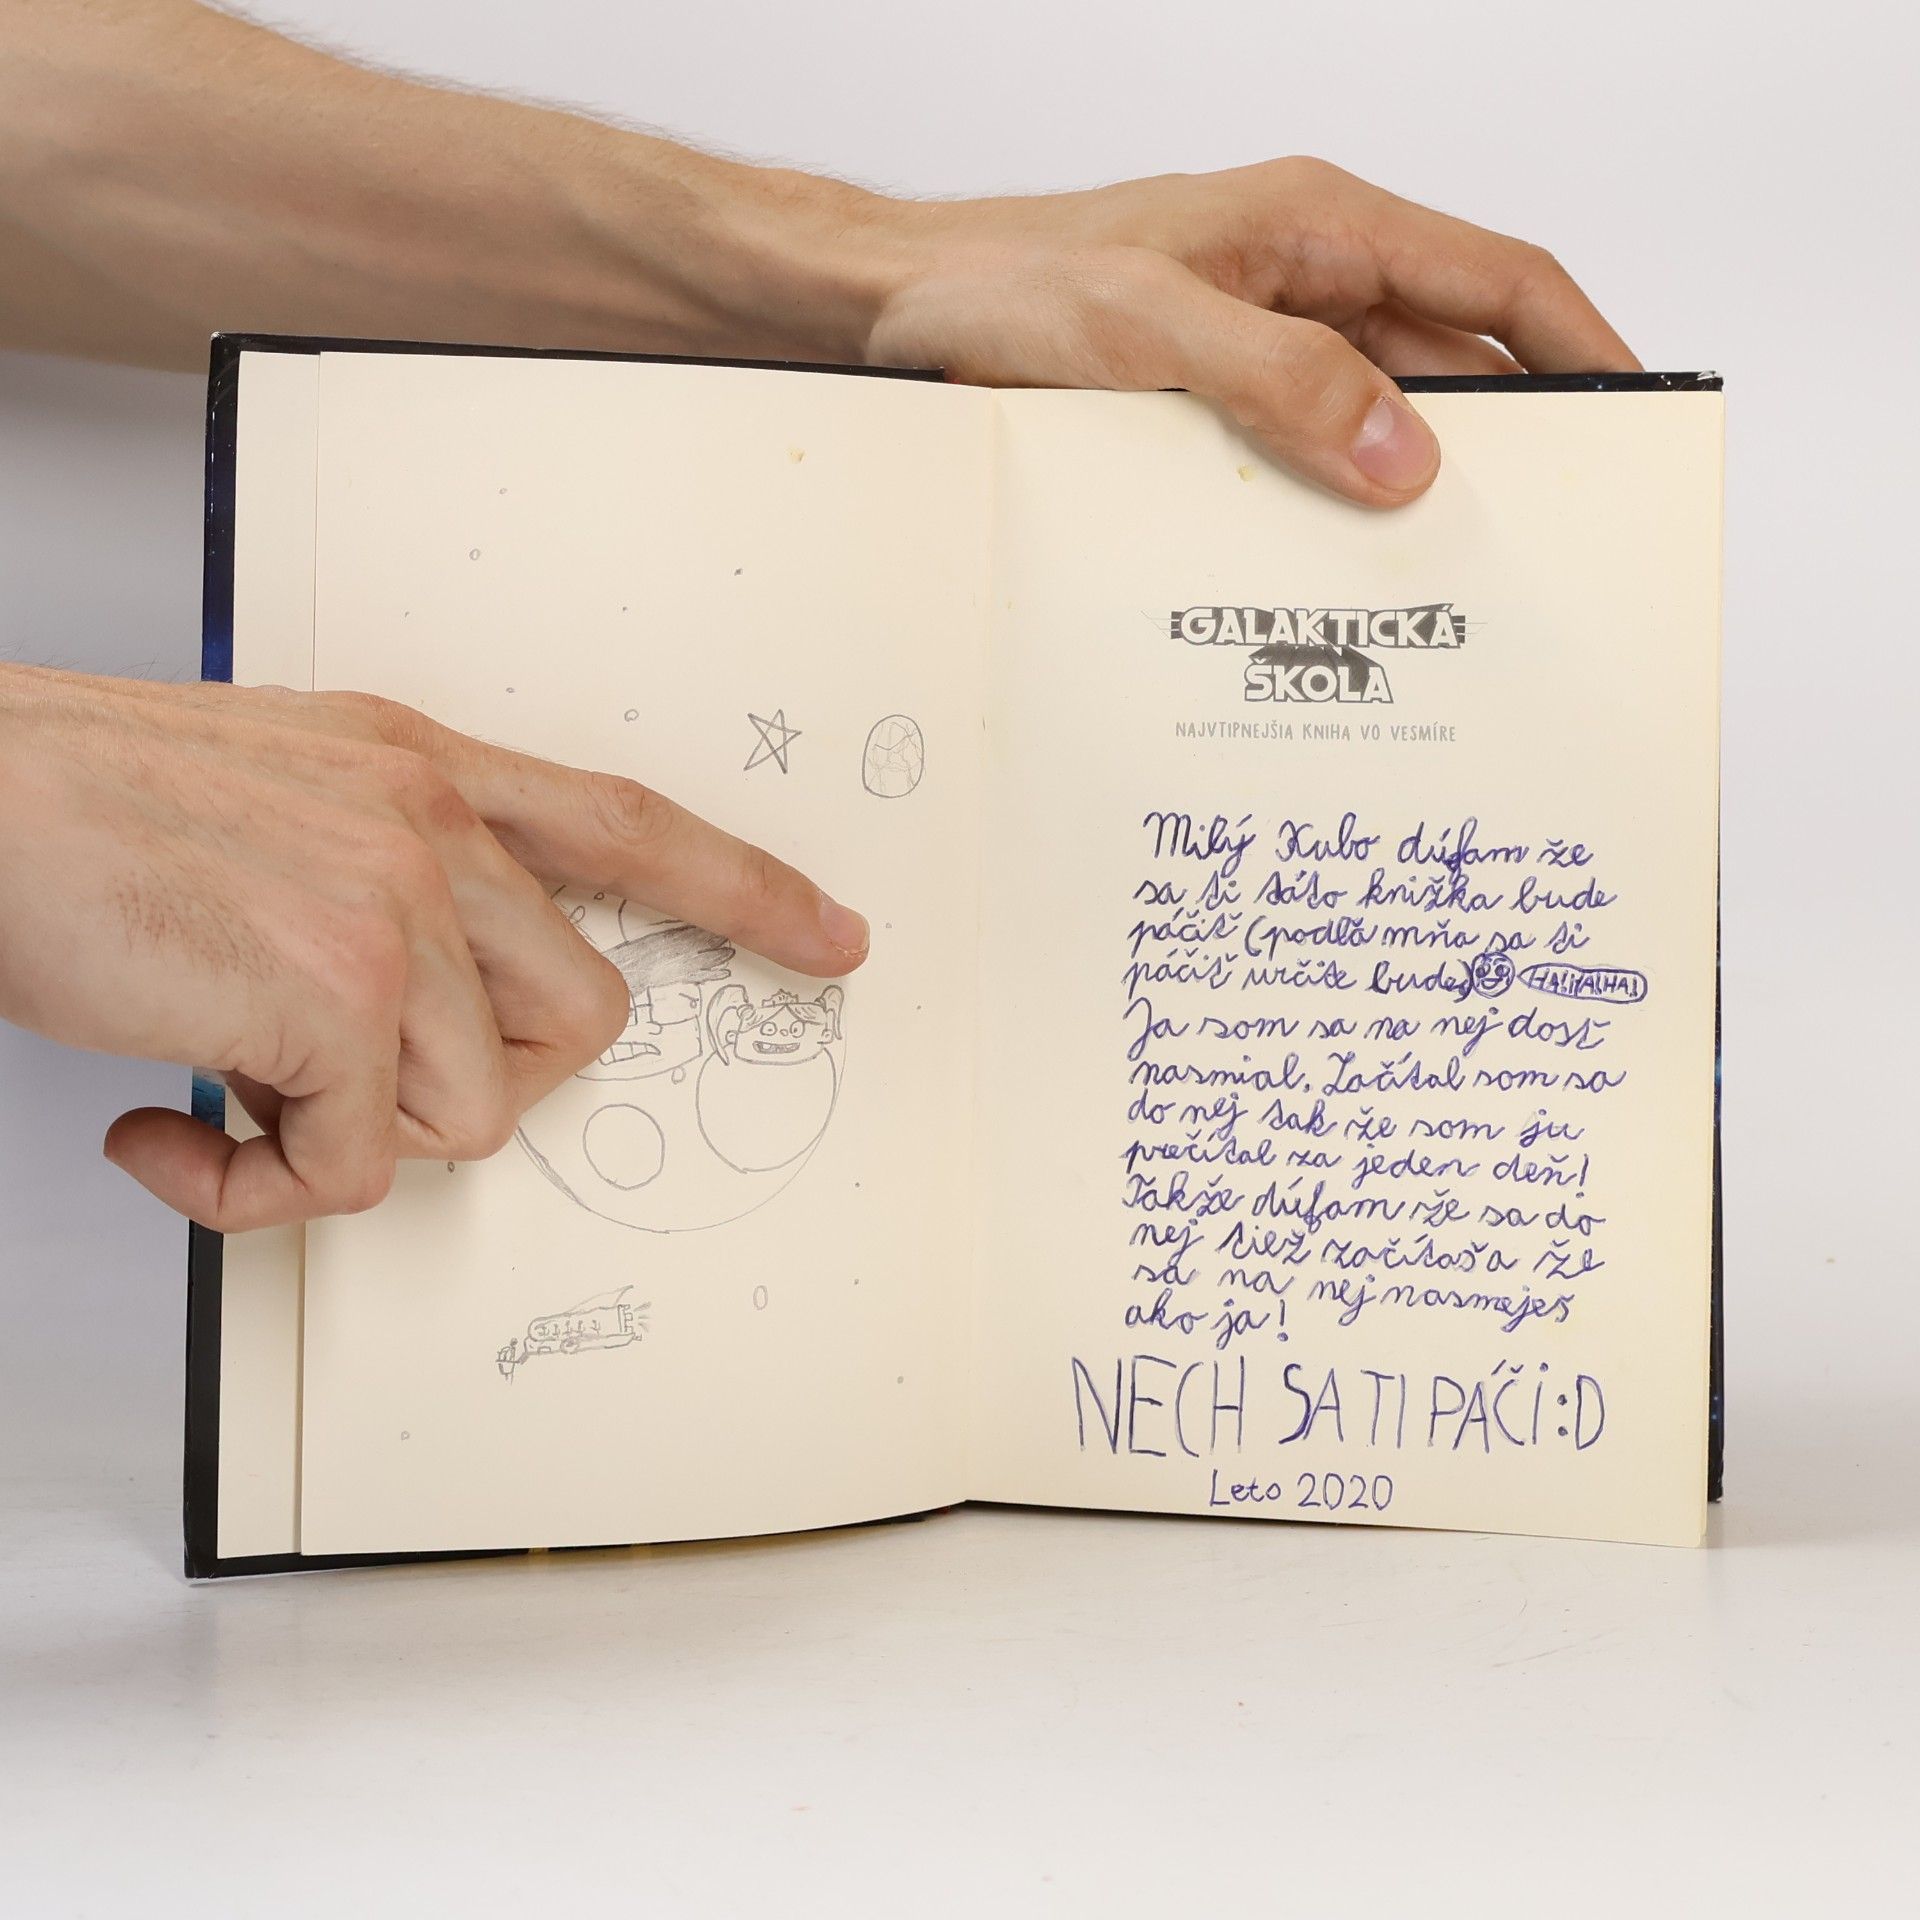 GALAKTICKÁ
ŠKOLA
NAJVTIPNEJŠIA KNIHA VO VESMÍRE
Milý Kubo dúfam že
sa ti táto knižka bude
páčiť (podľa mňa sa ti
páčiť určite bude) HA!HA!HA!
Ja som sa na nej dosť
nasmial. Začítal som sa
do nej tak že som ju
prečítal za jeden deň!
Takže dúfam že sa do
nej tiež začítaš a že
sa na nej nasmeješ
ako ja!
NECH SA TI PÁČI :D
Leto 2020